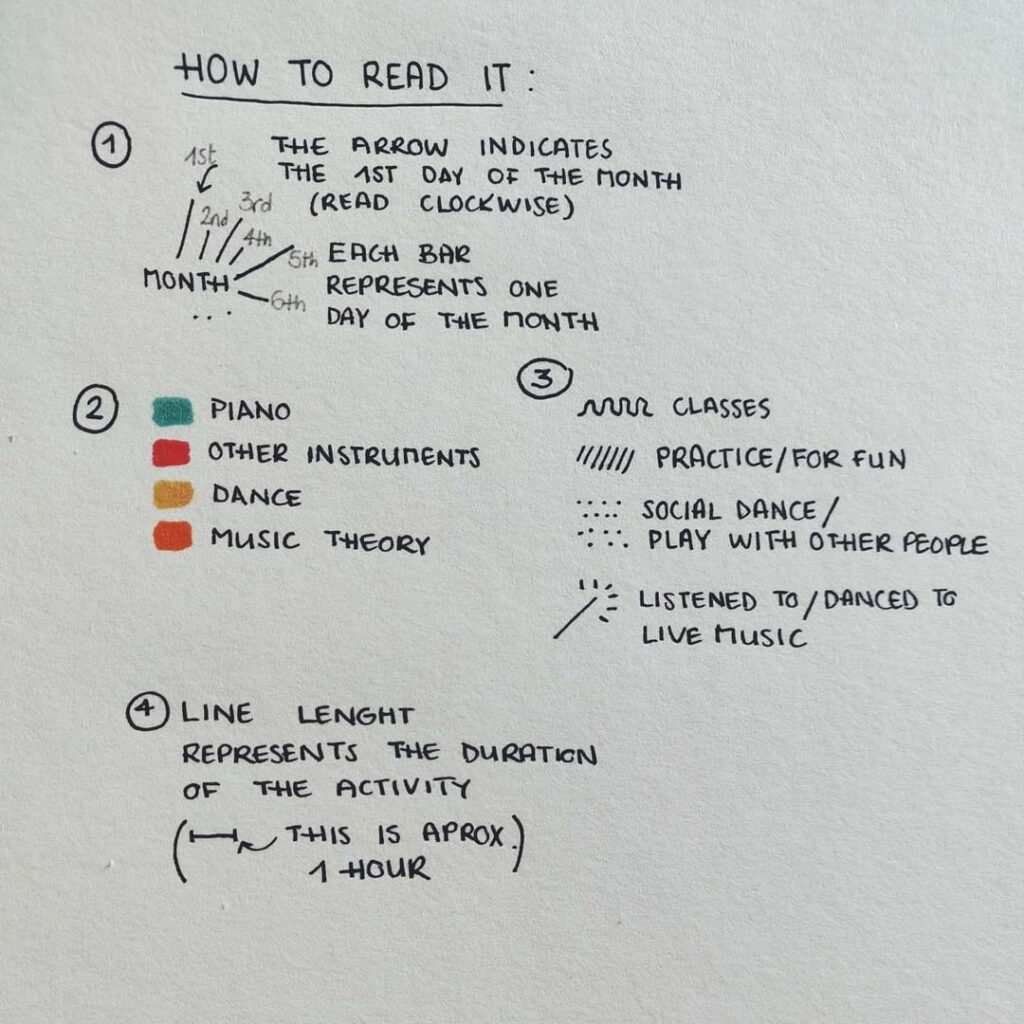 HOW TO READ IT:
1
1st
2nd
3rd
4th
5th
6th
MONTH
...
THE ARROW INDICATES
THE 1ST DAY OF THE MONTH
(READ CLOCKWISE)
EACH BAR
REPRESENTS ONE
DAY OF THE MONTH
2
PIANO
OTHER INSTRUMENTS
DANCE
MUSIC THEORY
3
CLASSES
PRACTICE/FOR FUN
SOCIAL DANCE/
PLAY WITH OTHER PEOPLE
LISTENED TO/DANCED TO
LIVE MUSIC
4 LINE LENGHT
REPRESENTS THE DURATION
OF THE ACTIVITY
( THIS IS APROX.)
1 HOUR